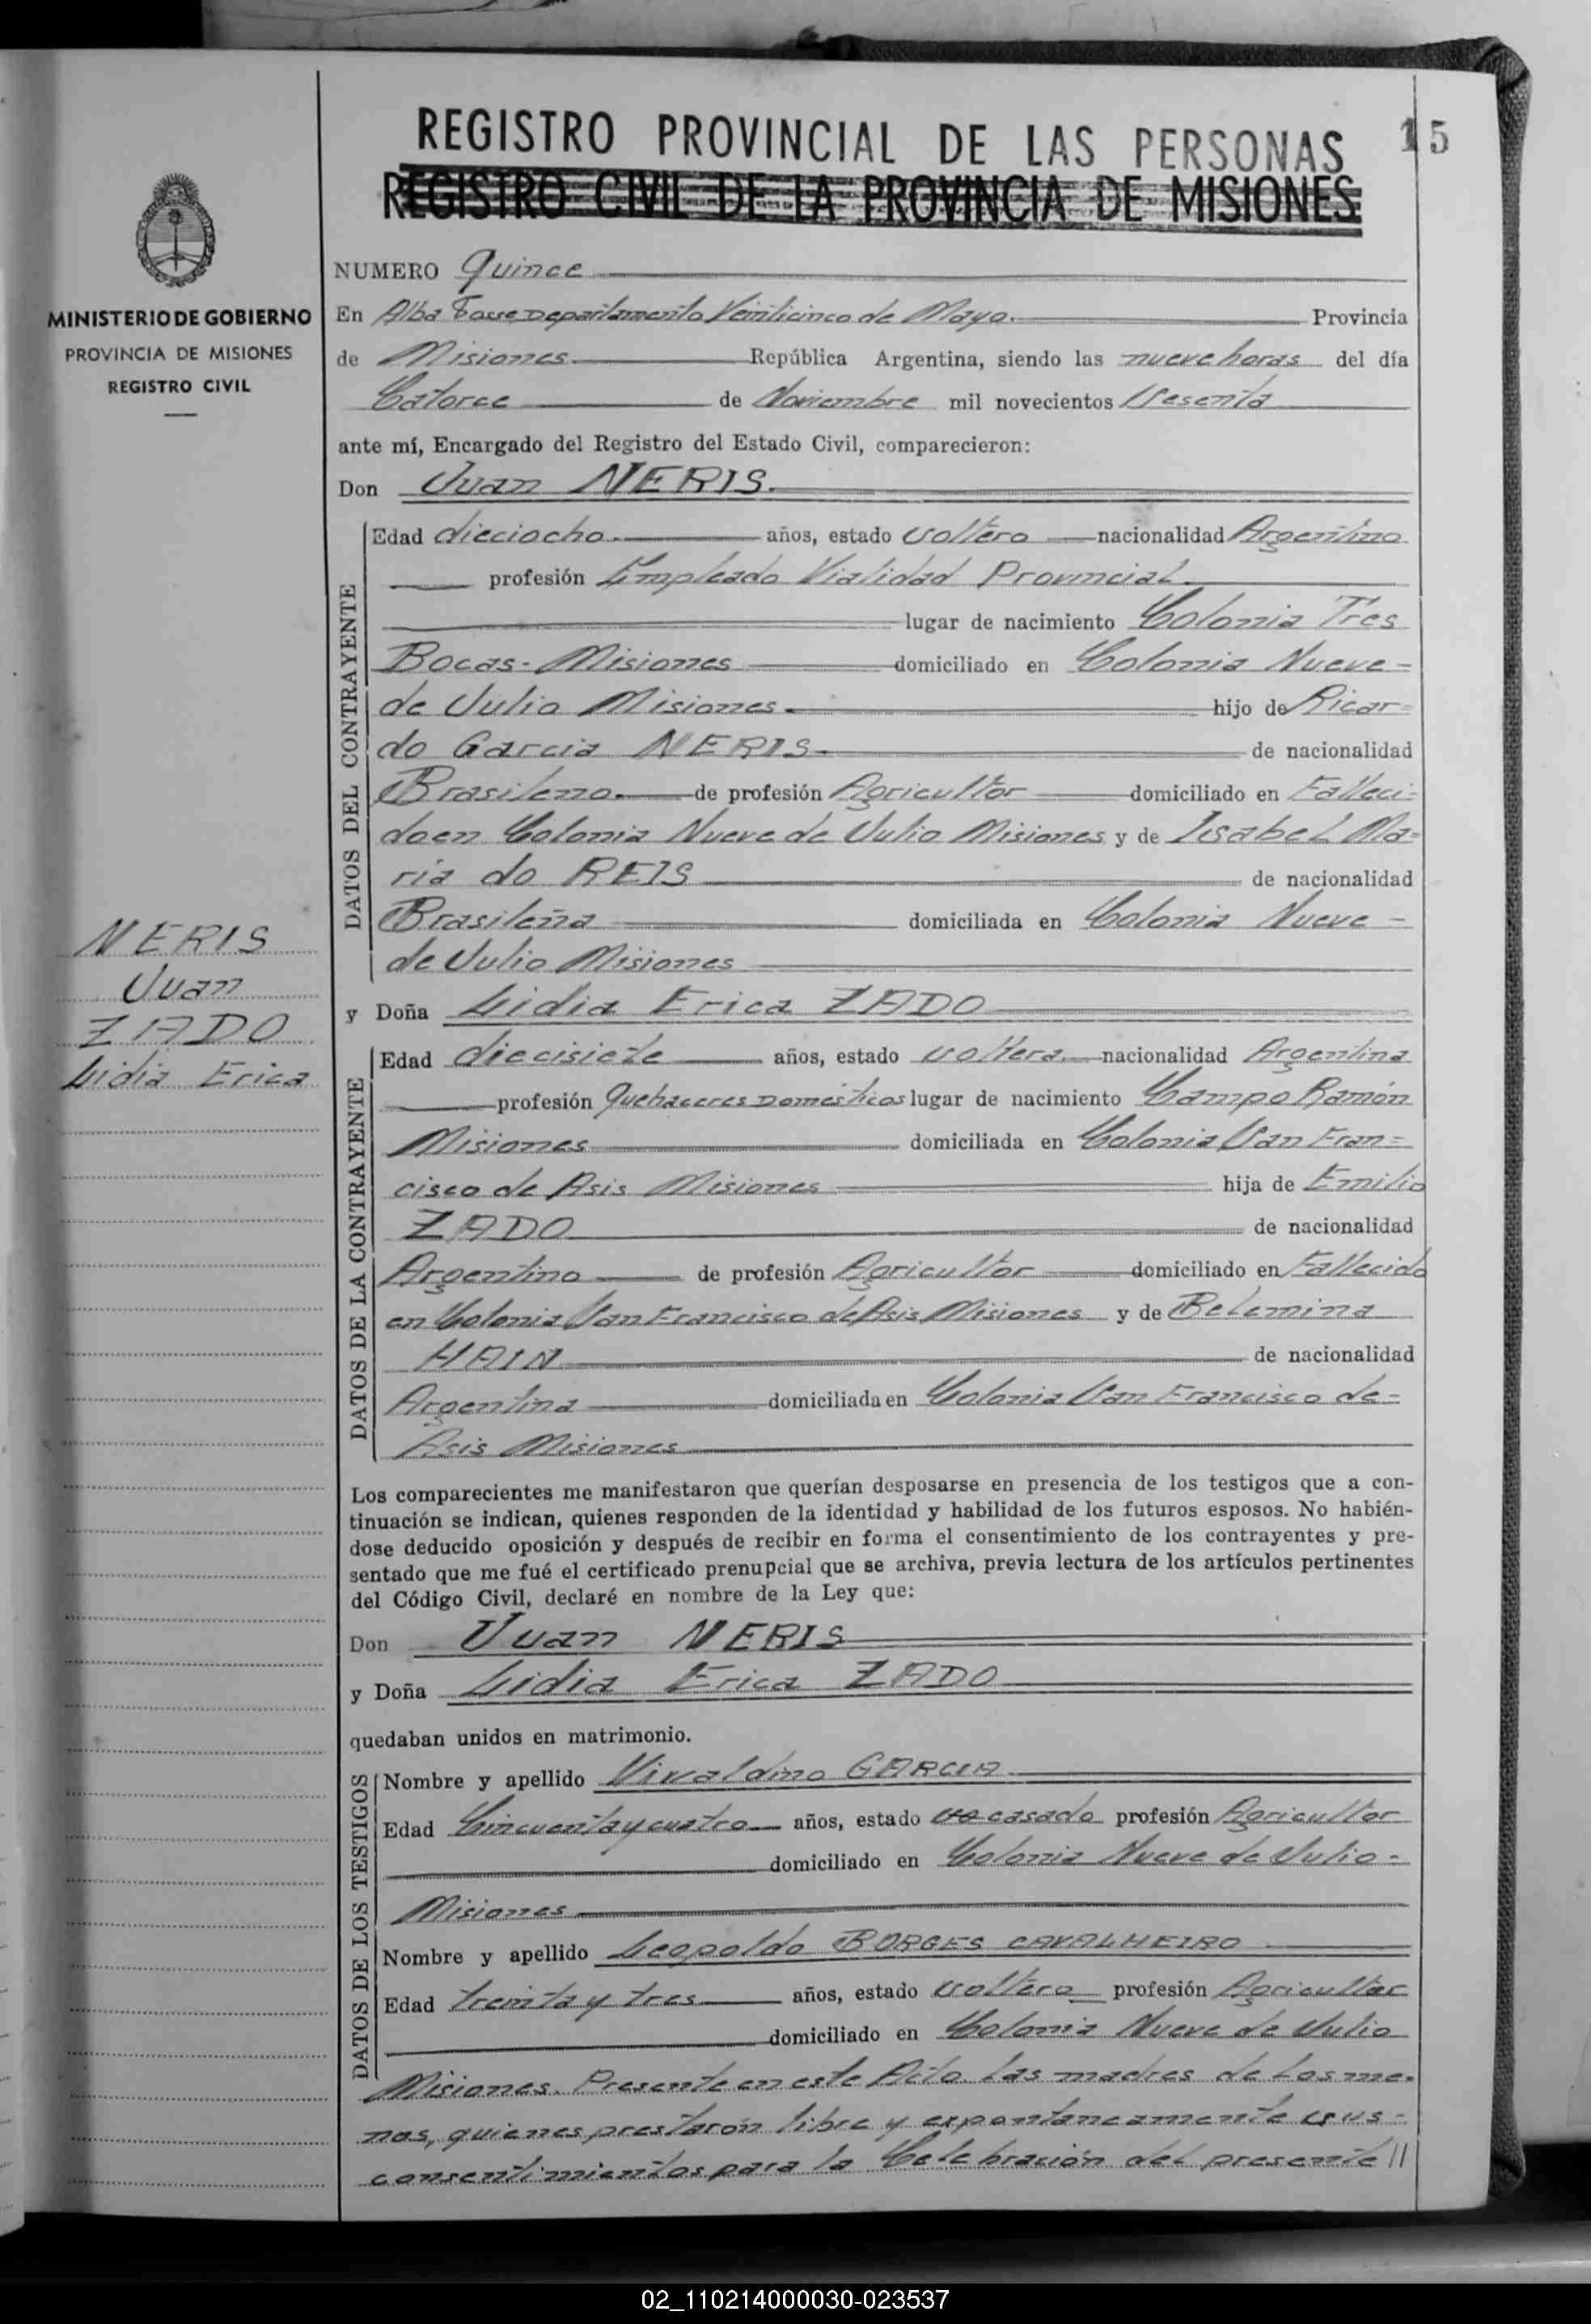 REGISTRO PROVINCIAL DE LAS PERSONAS 15
REGISTRO CIVIL DE LA PROVINCIA DE MISIONES
MINISTERIO DE GOBIERNO
PROVINCIA DE MISIONES
REGISTRO CIVIL
NERIS
Juan
ZADO
Lidia Erica
NUMERO Quince
En Alba Posse Departamento Veinticinco de Mayo. Provincia
de Misiones República Argentina, siendo las nueve horas del día
Catorce de Noviembre mil novecientos Sesenta
ante mí, Encargado del Registro del Estado Civil, comparecieron:
Don Juan NERIS.
DATOS DEL CONTRAYENTE
Edad dieciocho. años, estado soltero nacionalidad Argentino
profesión Empleado Vialidad Provincial.
lugar de nacimiento Colonia Tres
Bocas - Misiones domiciliado en Colonia Nueve -
de Julio Misiones. hijo de Ricar=
do Garcia NERIS. de nacionalidad
Brasileno. de profesión Agricultor domiciliado en Falleci=
do en Colonia Nueve de Julio Misiones y de Isabel Ma=
ria do REIS de nacionalidad
Brasileña domiciliada en Colonia Nueve -
de Julio Misiones
y Doña Lidia Erica ZADO
DATOS DE LA CONTRAYENTE
Edad diecisiete años, estado soltera. nacionalidad Argentina
profesión Quehaceres Domésticos lugar de nacimiento Campo Ramón
Misiones domiciliada en Colonia San Fran=
cisco de Asis Misiones hija de Emilio
ZADO de nacionalidad
Argentino de profesión Agricultor domiciliado en Fallecido
en Colonia San Francisco de Asis Misiones y de Belmina
HAIN de nacionalidad
Argentina domiciliada en Colonia San Francisco de=
Asis Misiones
Los comparecientes me manifestaron que querían desposarse en presencia de los testigos que a con-
tinuación se indican, quienes responden de la identidad y habilidad de los futuros esposos. No habién-
dose deducido oposición y después de recibir en forma el consentimiento de los contrayentes y pre-
sentado que me fué el certificado prenupcial que se archiva, previa lectura de los artículos pertinentes
del Código Civil, declaré en nombre de la Ley que:
Don Juan NERIS
y Doña Lidia Erica ZADO
quedaban unidos en matrimonio.
DATOS DE LOS TESTIGOS
Nombre y apellido Vivaldino GARCIA
Edad Cincuenta y cuatro años, estado so casado profesión Agricultor
domiciliado en Colonia Nueve de Julio -
Misiones
Nombre y apellido Leopoldo BORGES CAVALHEIRO
Edad treinta y tres años, estado soltero profesión Agricultor
domiciliado en Colonia Nueve de Julio
Misiones. Presente en este Acto las madres de los me.
nos, quienes prestarón libre y expontaneamente sus -
consentimientos para la Celebración del presente //
02_110214000030-023537